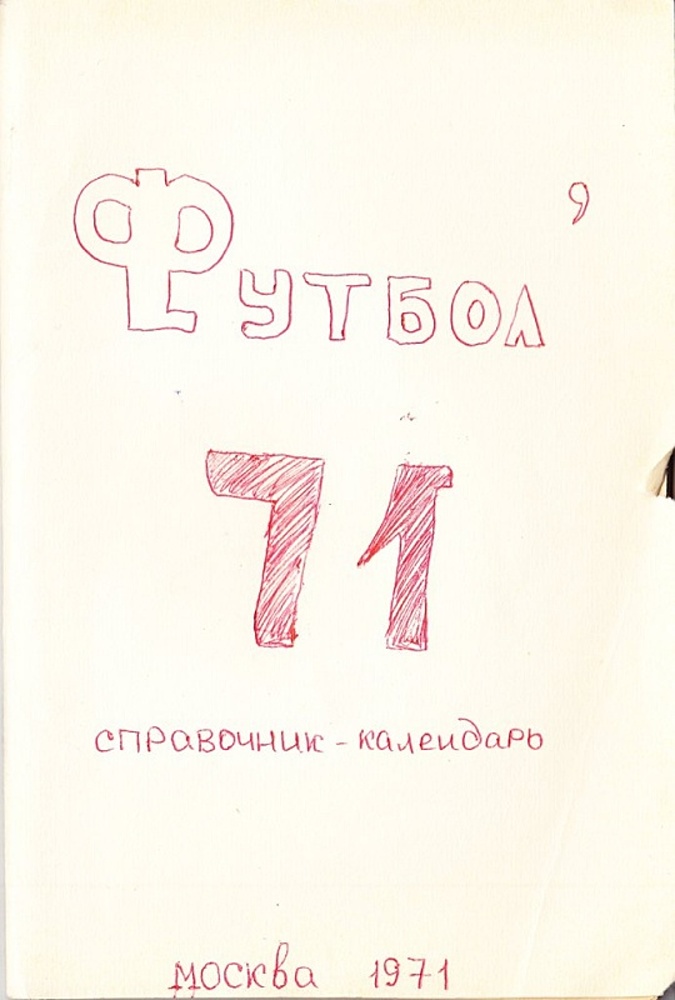 Футбол ’
71
справочник - календарь
москва 1971